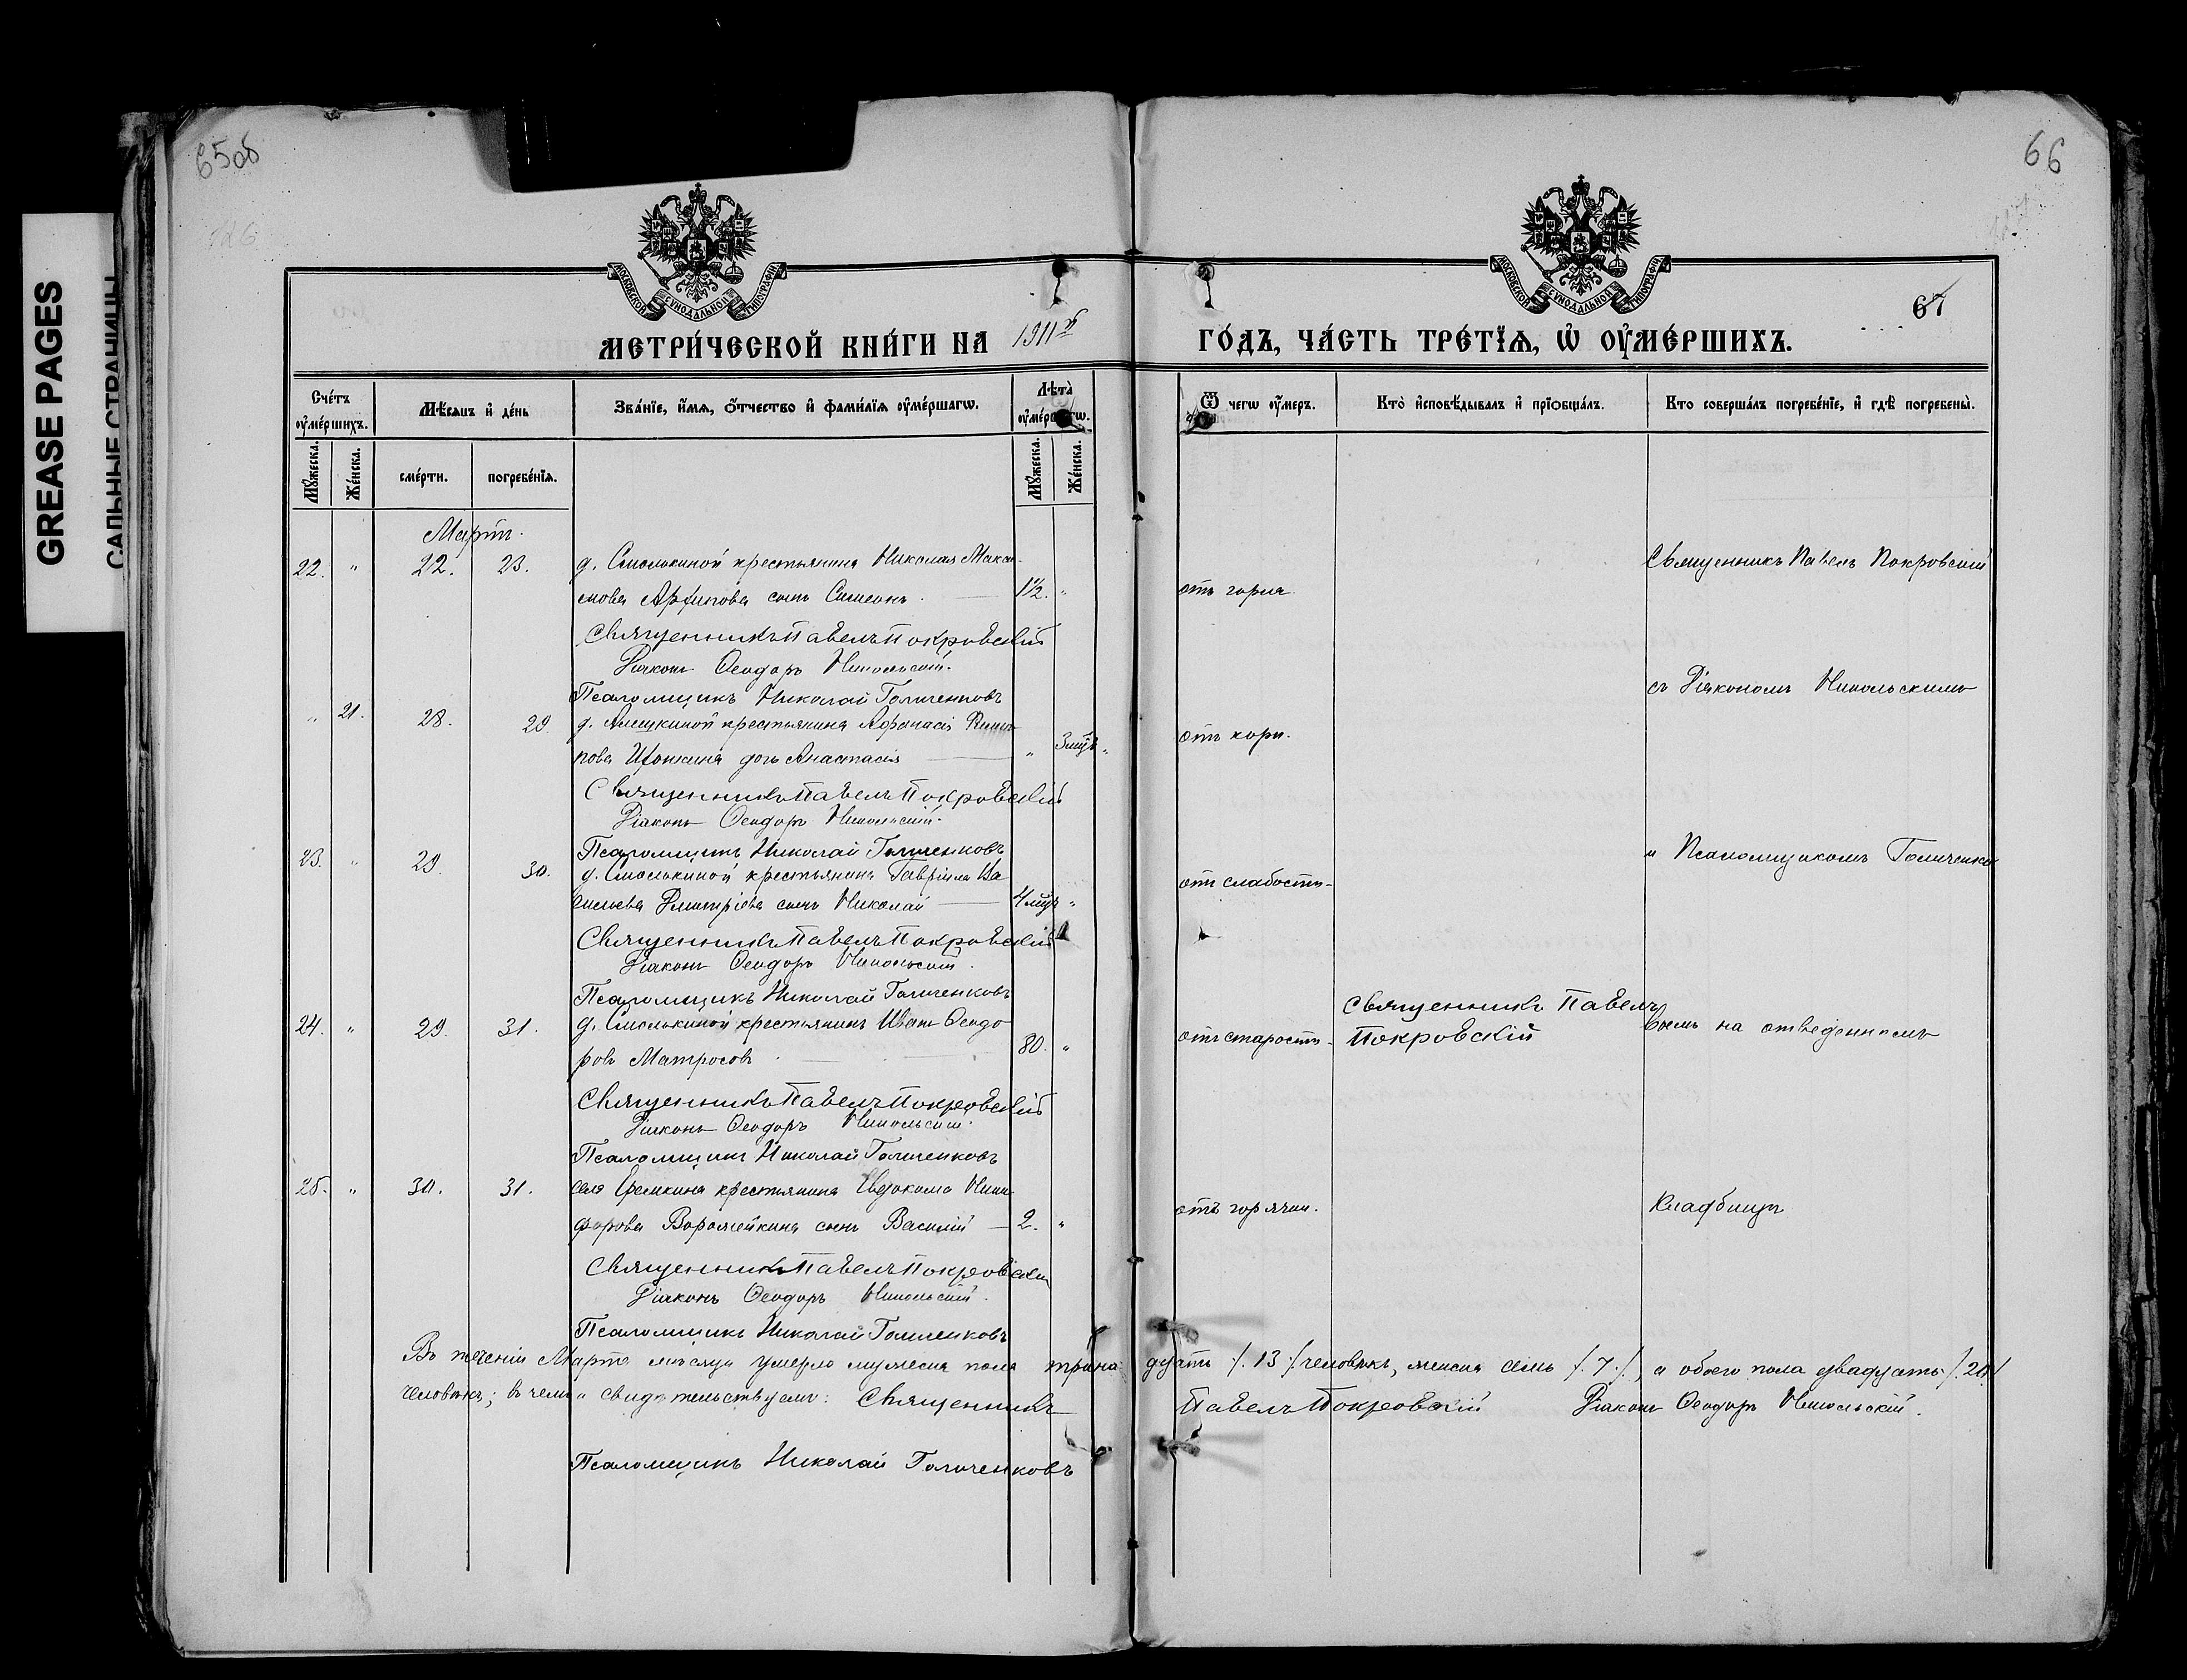 GREASE PAGES
САЛЬНЫЕ СТРАНИЦЫ
65об
66
126
67
МОСКОВСКОЙ СѴНОДАЛЬНОЙ ТИПОГРАФІИ
МОСКОВСКОЙ СѴНОДАЛЬНОЙ ТИПОГРАФІИ
МЕТРИ́ЧЕСКОЙ КНИ́ГИ НА 1911й ГО́ДЪ, ЧА́СТЬ ТРЕ́ТЇѦ, Ѡ҆ ОУ҆МЕ́РШИХЪ.
Сче́тъ оу҆ме́ршихъ.
Мѣ́сяцъ и҆ де́нь
Зва́нїе, и҆́мѧ, ѻ҆́тчество и҆ фами́лїѧ оу҆ме́ршагѡ.
Лѣта̀ оу҆ме́ршагѡ.
Ѿ чегѡ оу҆́меръ.
Кто̀ и҆сповѣ́дывалъ и҆ прїѻбща́лъ.
Кто соверша́лъ погребе́нїе, и҆ гдѣ̀ погребены̀.
Мꙋ́жеска.
Же́нска.
сме́рти.
погребе́нїѧ.
Мꙋ́жеска.
Же́нска.
Мартъ.
22. " 22. 23. д. Смолькиной крестьянина Николая Макси-
мова Архипова сынъ Симеонъ. 1½. " отъ горла. Священникъ Павелъ Покровскій
Священникъ Павелъ Покровскій
Діаконъ Ѳеодоръ Никольскій.
Псаломщикъ Николай Голиченковъ
съ Діакономъ Никольскимъ
" 21. 28. 29. д. Алешкиной крестьянина Афанасія
пова дочь Анастасія " 3 мцѣ " отъ кори.
Священникъ Павелъ Покровскій
Діаконъ Ѳеодоръ Никольскій.
Псаломщикъ Николай Голиченковъ
и Псаломщикомъ Голиченков
23. " 29. 30. д. Смолькиной крестьянина Гавріила Ва-
сильева Дмитріева сынъ Николай 4 мцѣ " отъ слабости
Священникъ Павелъ Покровскій
Діаконъ Ѳеодоръ Никольскій.
Псаломщикъ Николай Голиченковъ
24. " 29. 31. д. Смолькиной крестьянинъ Иванъ Ѳеодо-
ровъ Матросовъ 80. " отъ старости Священникъ Павелъ Покровскій на отведенномъ
Священникъ Павелъ Покровскій
Діаконъ Ѳеодоръ Никольскій.
Псаломщикъ Николай Голиченковъ
25. " 30. 31. села Еремкина крестьянина Евдокима Ники-
форова Воромейкина сынъ Василій 2. " отъ горячки. Кладбищѣ
Священникъ Павелъ Покровскій
Діаконъ Ѳеодоръ Никольскій.
Псаломщикъ Николай Голиченковъ
Въ теченіи Марта мѣсяца умерло мужеска пола тринадцать /. 13 ./ человѣкъ, женска семь /. 7 ./, а обоего пола двадцать /. 20 /
человѣкъ; въ чемъ и свидѣтельствуемъ: Священникъ Павелъ Покровскій Діаконъ Ѳеодоръ Никольскій.
Псаломщикъ Николай Голиченковъ